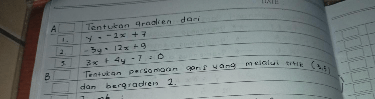 DATE
A Tentukan gradien dari
1. y = -2x + 7
2. -3y = 12x + 9
3. 3x + 4y - 7 = 0
B Tentukan persamaan garis yang melalui titik
dan bergradien 2.